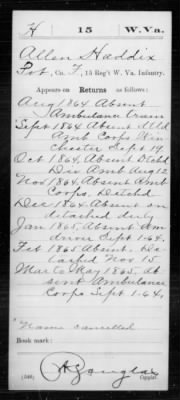 H 15 W. Va.
Allen Haddix
Pvt, Co. F, 15 Reg't W. Va. Infantry.
Appears on Returns as follows:
Aug 1864 Absent
Ambulance train
Sept 1864 Absent
Amb Corps Win
chester Sept 19.
Oct 1864, Absent Detchd
Div Amb Aug 12
Nov 1864, Absent Amb
Corps, Detchd
Dec 1864, Absent on
detached duty
Jan 1865, Absent Am
driver Sept 1-64,
Feb 1865 Absent. De
tached Nov 15
Mar to May 1865, Ab
sent Ambulance
Corps Sept 1-64,
Name cancelled
Book mark:
(546) Copyist.